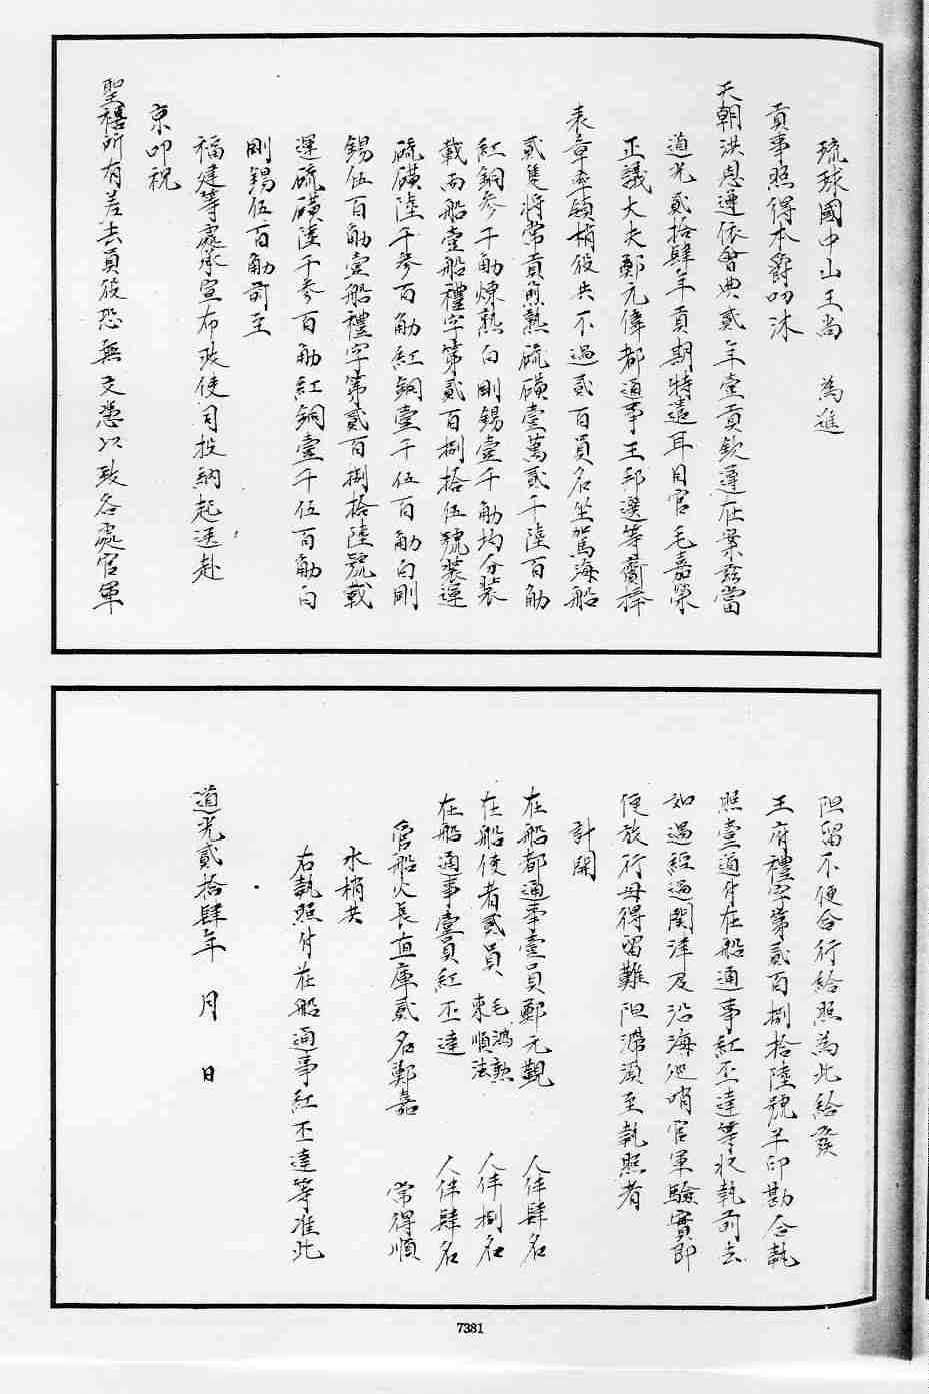 琉球國中山王尚　為進
貢事照得本爵叨沐
天朝洪恩遵依會典貳年壹貢欽遵在案茲當
道光貳拾肆年貢期特遣耳目官毛嘉榮
正議大夫鄭元偉都通事王邱選等齎捧
表章率領梢役共不過貳百員名坐駕海船
貳隻將常貢煎熟硫磺壹萬貳千陸百觔
紅銅參千觔煉熟白剛錫壹千觔均分裝
載而船壹船禮字第貳百捌拾伍號裝運
硫磺陸千參百觔紅銅壹千伍百觔白剛
錫伍百觔壹船禮字第貳百捌拾陸號載
運硫磺陸千參百觔紅銅壹千伍百觔白
剛錫伍百觔前至
福建等處承宣布政使司投納起送赴
京叩祝
聖禧所有差去員役恐無文憑以致各處官軍
阻留不便合行給照為此給發
王府禮字第貳百捌拾陸號半印勘合執
照壹道付在船通事紅丕達等收執前去
如遇經過關津及沿海巡哨官軍驗實即
便放行毋得留難阻滯須至執照者
計開
在船都通事壹員鄭元觀　人伴肆名
在船使者貳員　毛鴻勲　東順法　人伴捌名
在船通事壹員紅丕達　人伴肆名
管船火長直庫貳名鄭嘉　常得順
水梢共
右執照付在船通事紅丕達等准此
道光貳拾肆年　月　日
7381